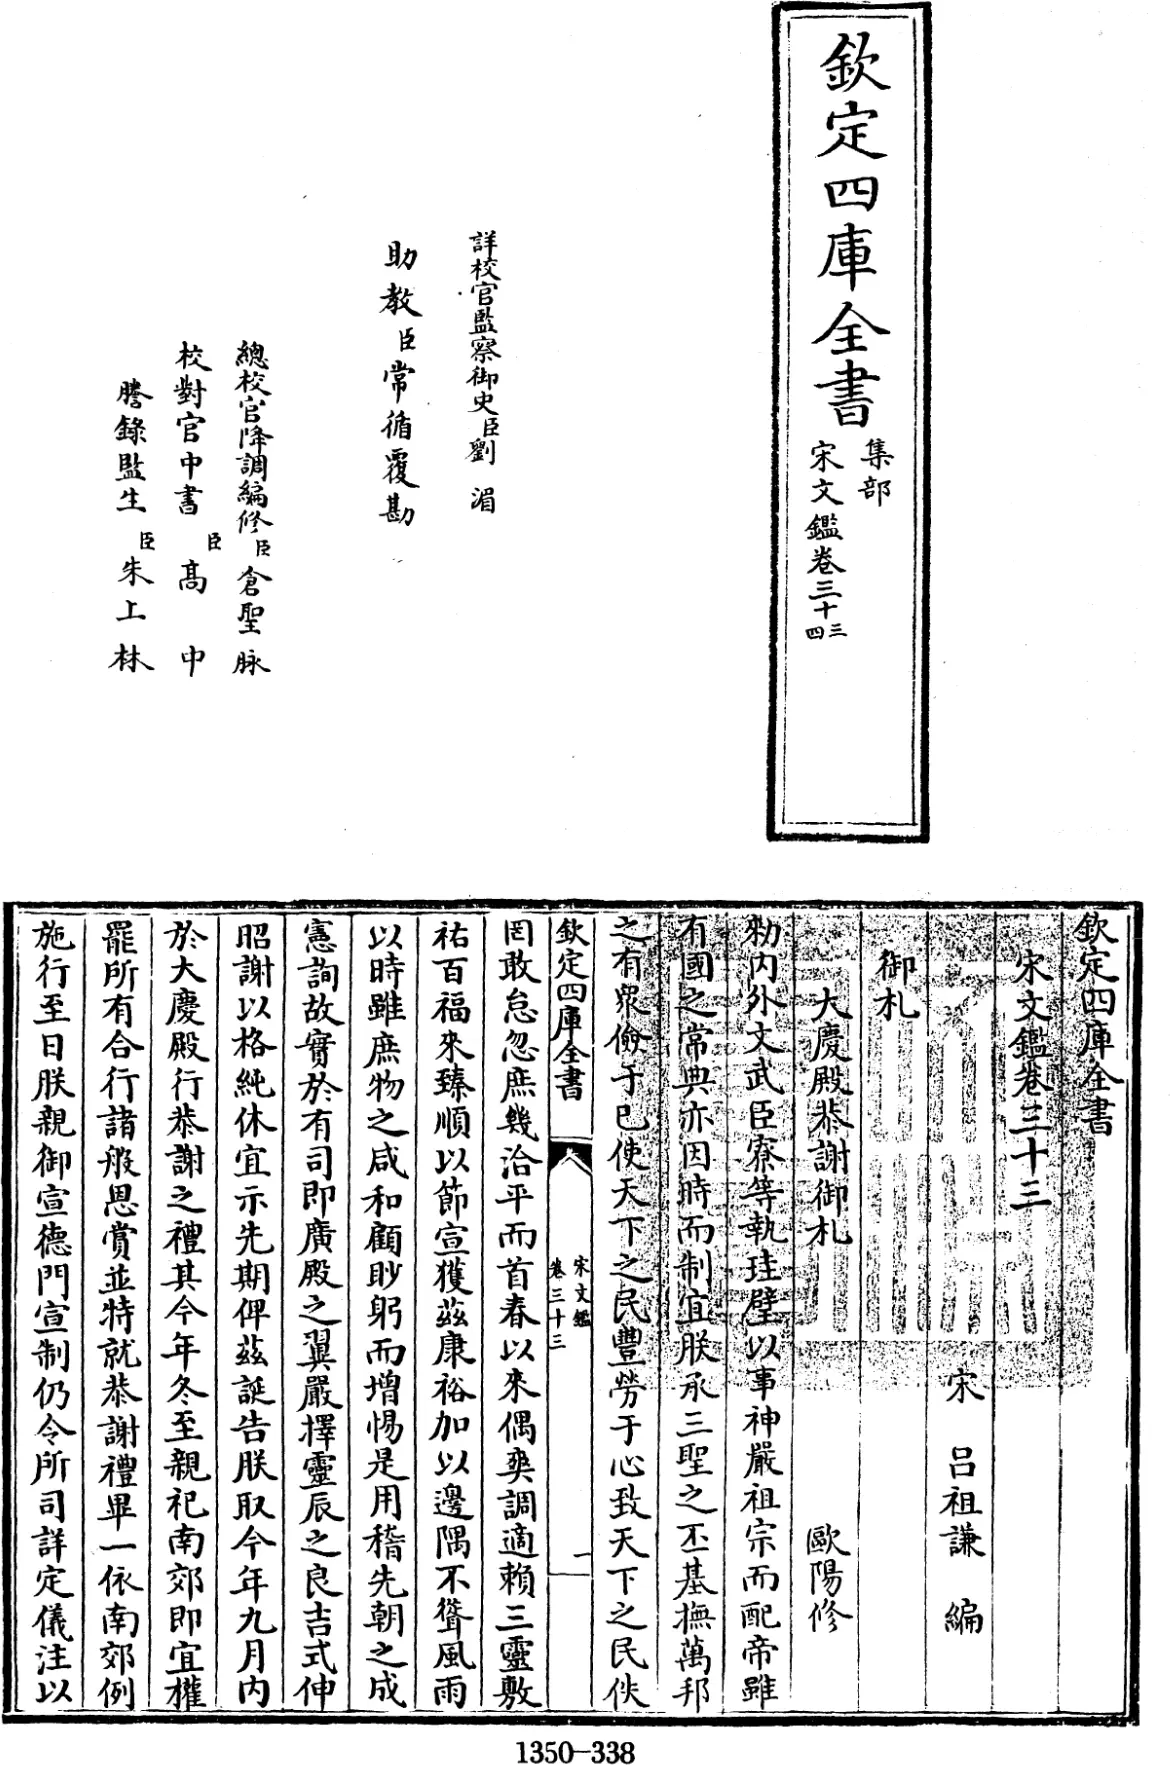 欽定四庫全書
集部
宋文鑑卷三十三
四
詳校官監察御史臣劉湄
助教臣常循覆勘
總校官降調編修臣倉聖脉
校對官中書臣高中
謄錄監生臣朱上林
欽定四庫全書
宋文鑑卷三十三
宋 呂祖謙 編
御札
大慶殿恭謝御札 歐陽修
勑內外文武臣寮等執珪璧以事神嚴祖宗而配帝雖
有國之常典亦因時而制宜朕承三聖之丕基撫萬邦
之有眾儉于已使天下之民豐勞于心致天下之民佚
欽定四庫全書
宋文鑑
卷三十三
一
罔敢怠忽庶幾治平而首春以來偶爽調適賴三靈敷
祐百福來臻順以節宣獲兹康裕加以邊隅不聳風雨
以時雖庶物之咸和顧眇躬而增惕是用稽先朝之成
憲詢故實於有司即廣殿之翼嚴擇靈辰之良吉式伸
昭謝以格純休宜示先期俾兹誕告朕取今年九月內
於大慶殿行恭謝之禮其今年冬至親祀南郊即宜權
罷所有合行諸般恩賞並特就恭謝禮畢一依南郊例
施行至日朕親御宣德門宣制仍令所司詳定儀注以
1350-338